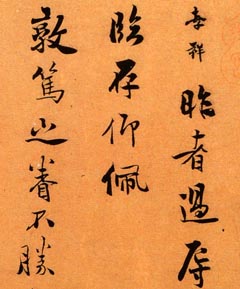 孝祥昨者過辱
臨存仰佩
敦篤之眷不勝